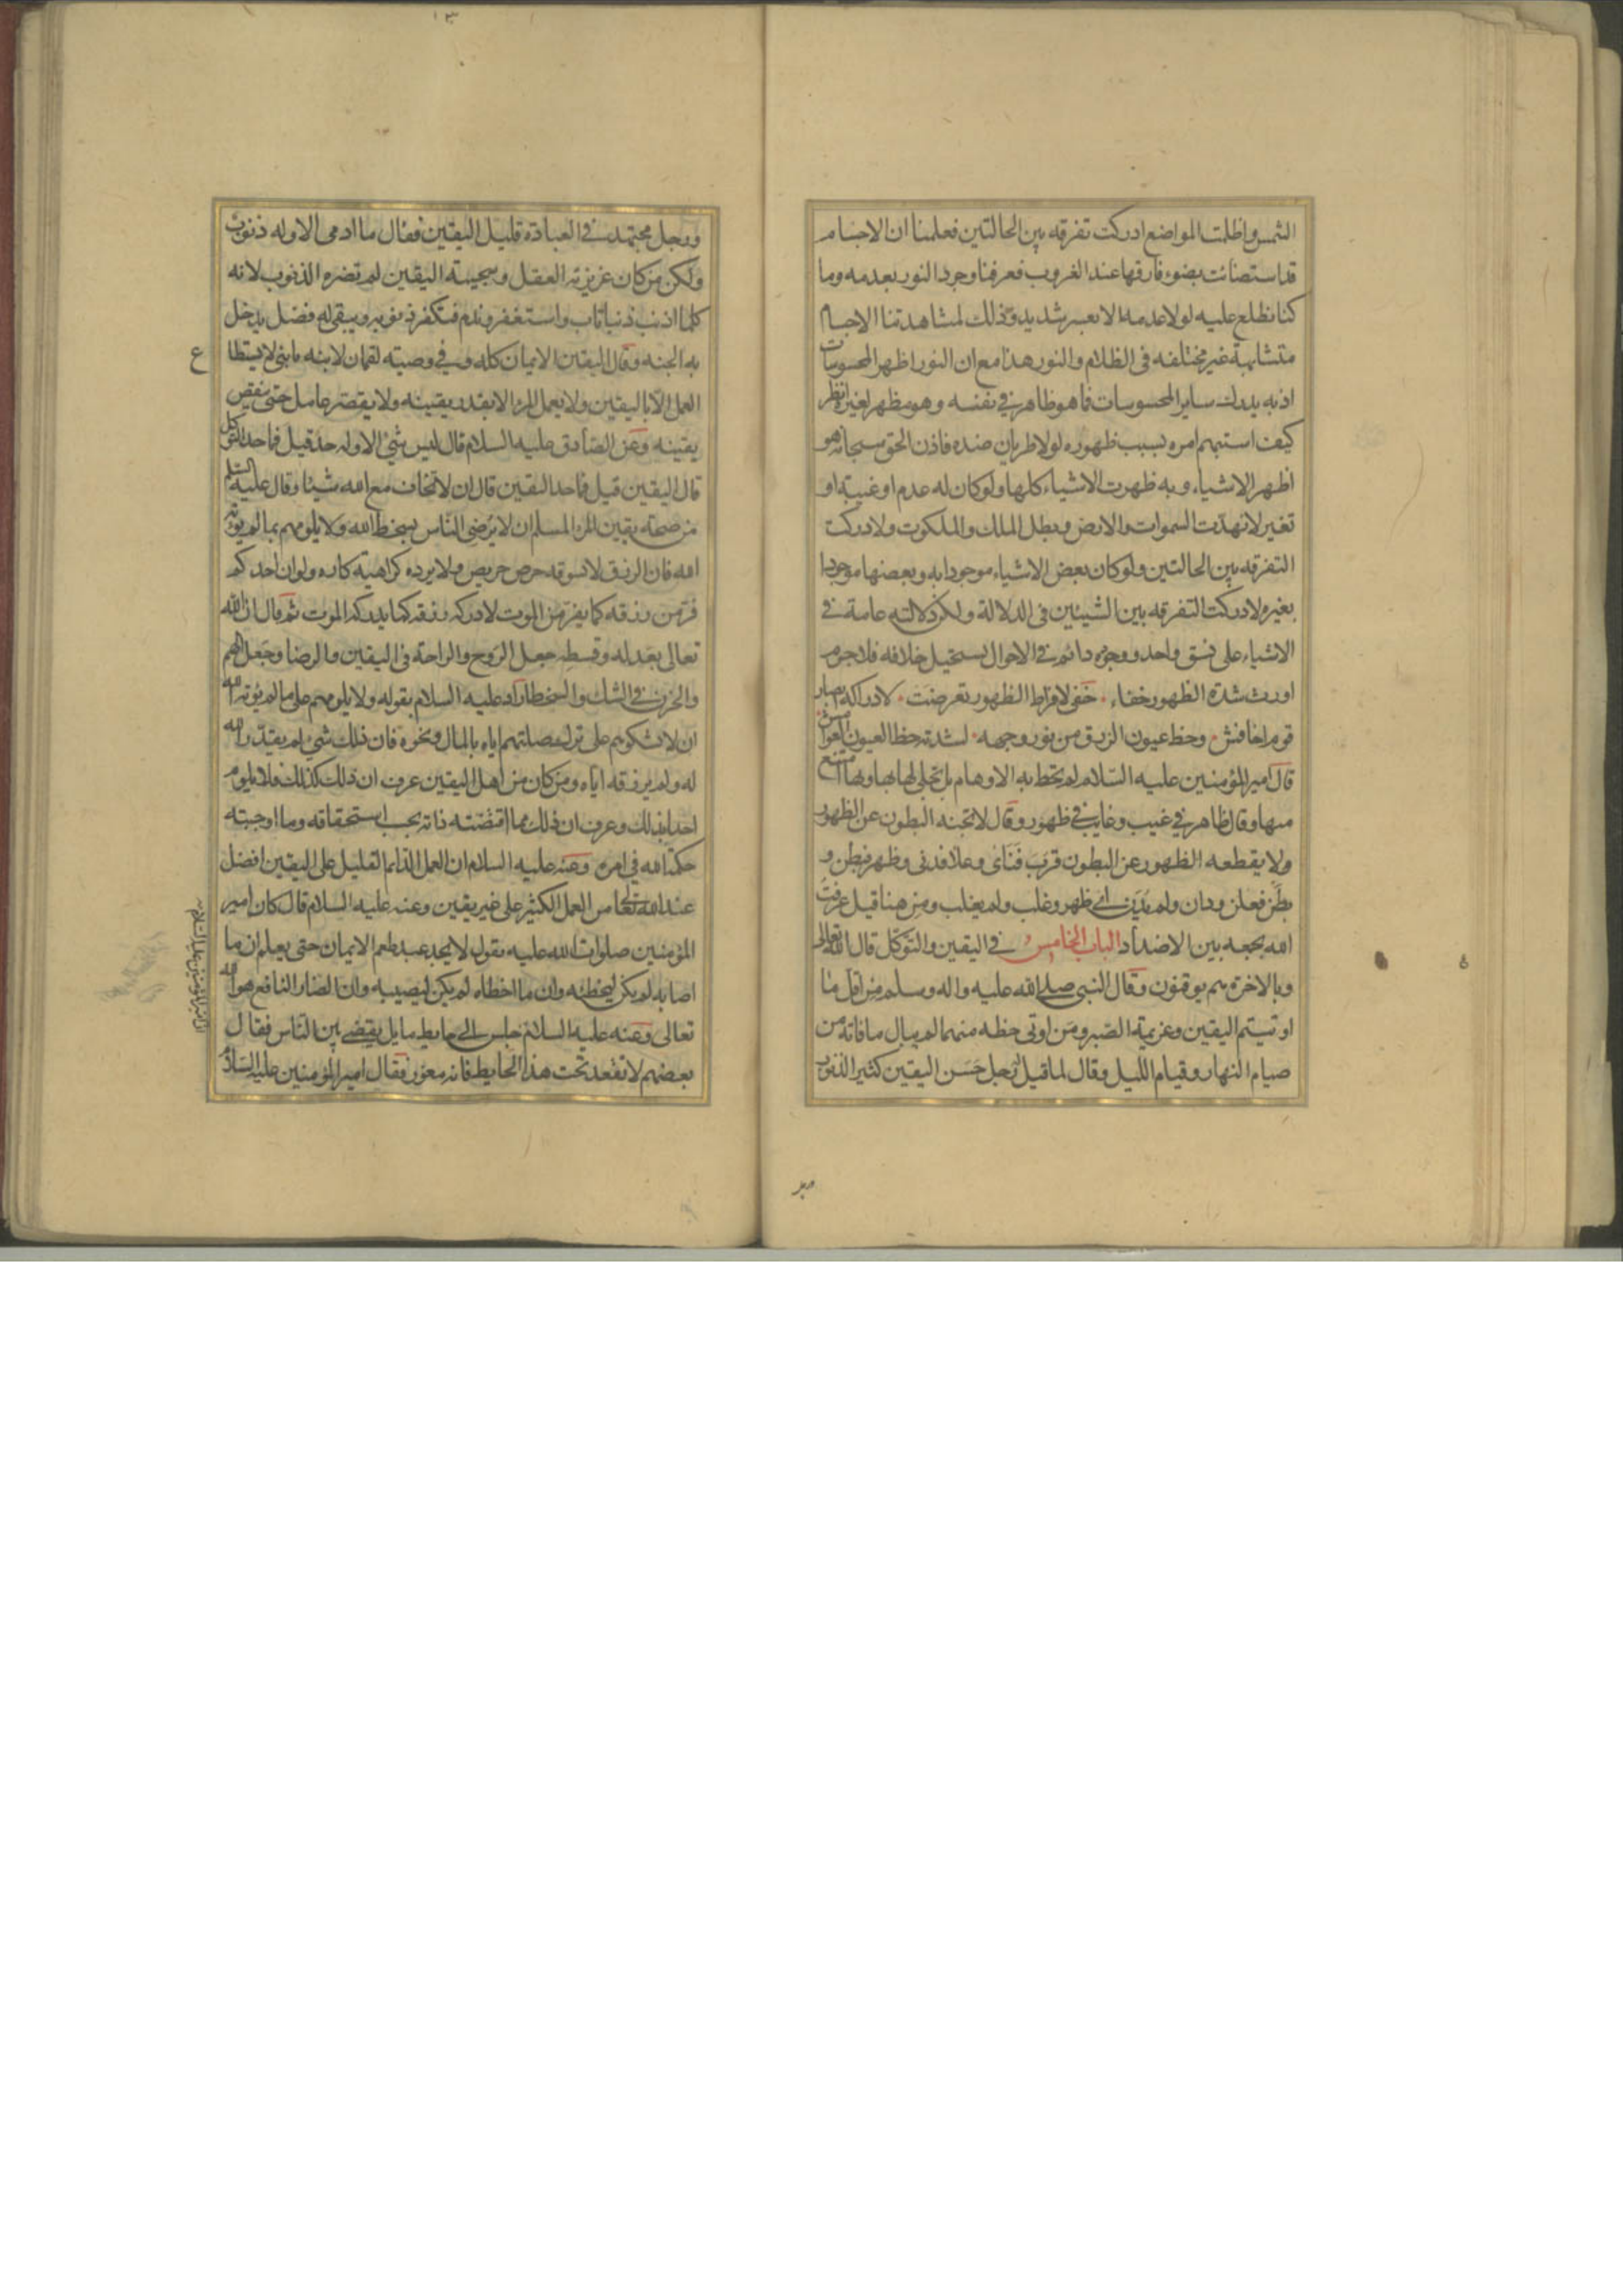 الشمس واظلمت المواضع ادركت تفرقه بين الحالتين فعلمنا ان الاجسام
قد استضائت بضوء فارقها عند الغروب فعرفنا وجود النور بعدمه وما
كنا نطلع عليه لولا عدمه الا بعسر شديد وذلك لمشاهدتنا الاجسام
متشابهة غير مختلفه فى الظلام والنور هذا مع ان النور اظهر المحسوسات
اذ به يدرك ساير المحسوسات فما هو ظاهر في نفسه وهو مظهر لغيره انظر
كيف استبهم امره بسبب ظهوره لولا طريان ضده فاذن الحق سبحانه هو
اظهر الاشياء وبه ظهرت الاشياء كلها ولو كان له عدم او غيبة او
تغير لانهدت السموات والارض وبطل الملك والملكوت ولادركت
التفرقه بين الحالتين ولو كان بعض الاشياء موجودا به وبعضها موجودا
بغيره لادركت التفرقه بين الشيئين فى الدلالة ولكن دلالته عامة في
الاشياء على نسق واحد ووجوده دائم في الاحوال يستحيل خلافه فلا جرم
اورث شدة الظهور خفاء خفى لافراط الظهور تعرضت لادراكه ابصار
قوم اخافش وحظ عيون الزرق من نور وجهه لشدته حظ العيون العوامش
قال امير المؤمنين عليه السلام لم تحط به الاوهام بل تجلى لها بها وبها امتنع
منها وقال ظاهر في غيب وغايب في ظهور وقال لا تجنه البطون عن الظهور
ولا يقطعه الظهور عن البطون قرب فنأى وعلا فدنى وظهر فبطن و
بطن فعلن ودان ولم يدن اى ظهر وغلب ولم يغلب ومن هنا قيل عرفت
الله بجمعه بين الاضداد الباب الخامس في اليقين والتوكل قال الله تعالى
وبالاخرة هم يوقنون وقال النبى صلى الله عليه واله وسلم من اقل ما
اوتيتم اليقين وعزيمة الصبر ومن اوتى حظه منهما لم يبال ما فاته من
صيام النهار وقيام الليل وقال لما قيل له رجل حسن اليقين كثير الذنوب
ورجل مجتهد في العبادة قليل اليقين فقال ما ادمى الا وله ذنوب
ولكن من كان غريزته العقل وسجيته اليقين لم تضره الذنوب لانه
كلما اذنب ذنبا تاب واستغفر وندم فتكفر ذنوبه ويبقى له فضل يدخل
به الجنه وقال اليقين الايمان كله وفي وصيته لقمان لابنه يا بنى لا يستطا
ع
العمل الا باليقين ولا يعمل المرء الا بقدر يقينه ولا يقصر عامل حتى ينقص
يقينه وعن الصادق عليه السلام قال ليس شئ الا وله حد قيل فما حد التوكل
قال اليقين قيل فما حد اليقين قال ان لا تخاف مع الله شيئا وقال عليه السلم
من صحة يقين المرء المسلم ان لا يرضى الناس بسخط الله ولا يلومهم بما لم يؤته
الله فان الرزق لا يسوقه حرص حريص ولا يرده كراهية كاره ولو ان احدكم
فر من رزقه كما يفر من الموت لادركه رزقه كما يدركه الموت ثم قال ان الله
تعالى بعدله وقسطه جعل الروح والراحة فى اليقين والرضا وجعل الهم
والحزن في الشك والسخط اراد عليه السلام بقوله ولا يلومهم على ما لم يؤته الله
ان لا يشكوهم على ترك صلتهم اياه بالمال ونحوه فان ذلك شئ لم يقدر الله
له ولم يرزقه اياه ومن كان من اهل اليقين عرف ان ذلك كذلك فلا يلوم
احدا بذلك وعرف ان ذلك مما اقتضته ذاته بحسب استحقاقه وما اوجبته
حكمة الله في امره وعنه عليه السلام ان العمل الدايم القليل على اليقين افضل
عند الله تعالى من العمل الكثير على غير يقين وعنه عليه السلام قال كان امير
المؤمنين صلوات الله عليه يقول لا يجد عبد طعم الايمان حتى يعلم ان ما
اصابه لم يكن ليخطئه وان ما اخطاه لم يكن ليصيبه وان الضار النافع هو الله
تعالى وعنه عليه السلام جلس الى حايط مايل يقضى بين الناس فقال
بعضهم لا تقعد تحت هذا الحايط فانه معور فقال امير المؤمنين عليه السلام